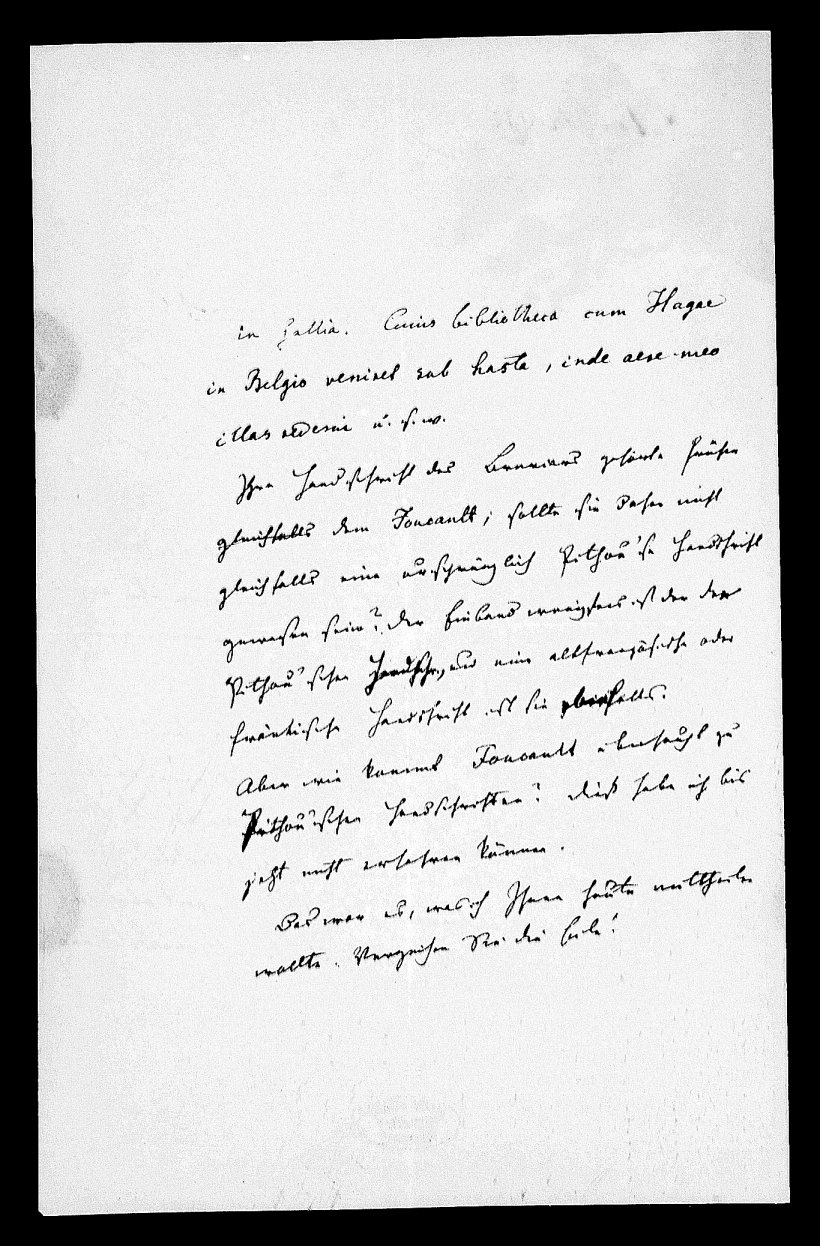 in Gallia. Cuius bibliotheca cum Hagae
in Belgio veniret sub hasta, inde aere meo
illas redemi u. s. w.
Ihre Handschrift des Breviars gehörte früher
gleichfalls dem Foucault; sollte sie daher nicht
gleichfalls eine ursprünglich Pithou'sche Handschrift
gewesen sein? Der Einband wenigstens ist der der
Pithou'schen Handschr., und eine altfranzösische oder
fränkische Handschrift ist sie ebenfalls.
Aber wie kommt Foucault überhaupt zu
Pithou'schen Handschriften? Dieß habe ich bis
jetzt nicht erfahren können.
Das war es, was ich Ihnen heute mittheilen
wollte. Verzeihen Sie die Eile!